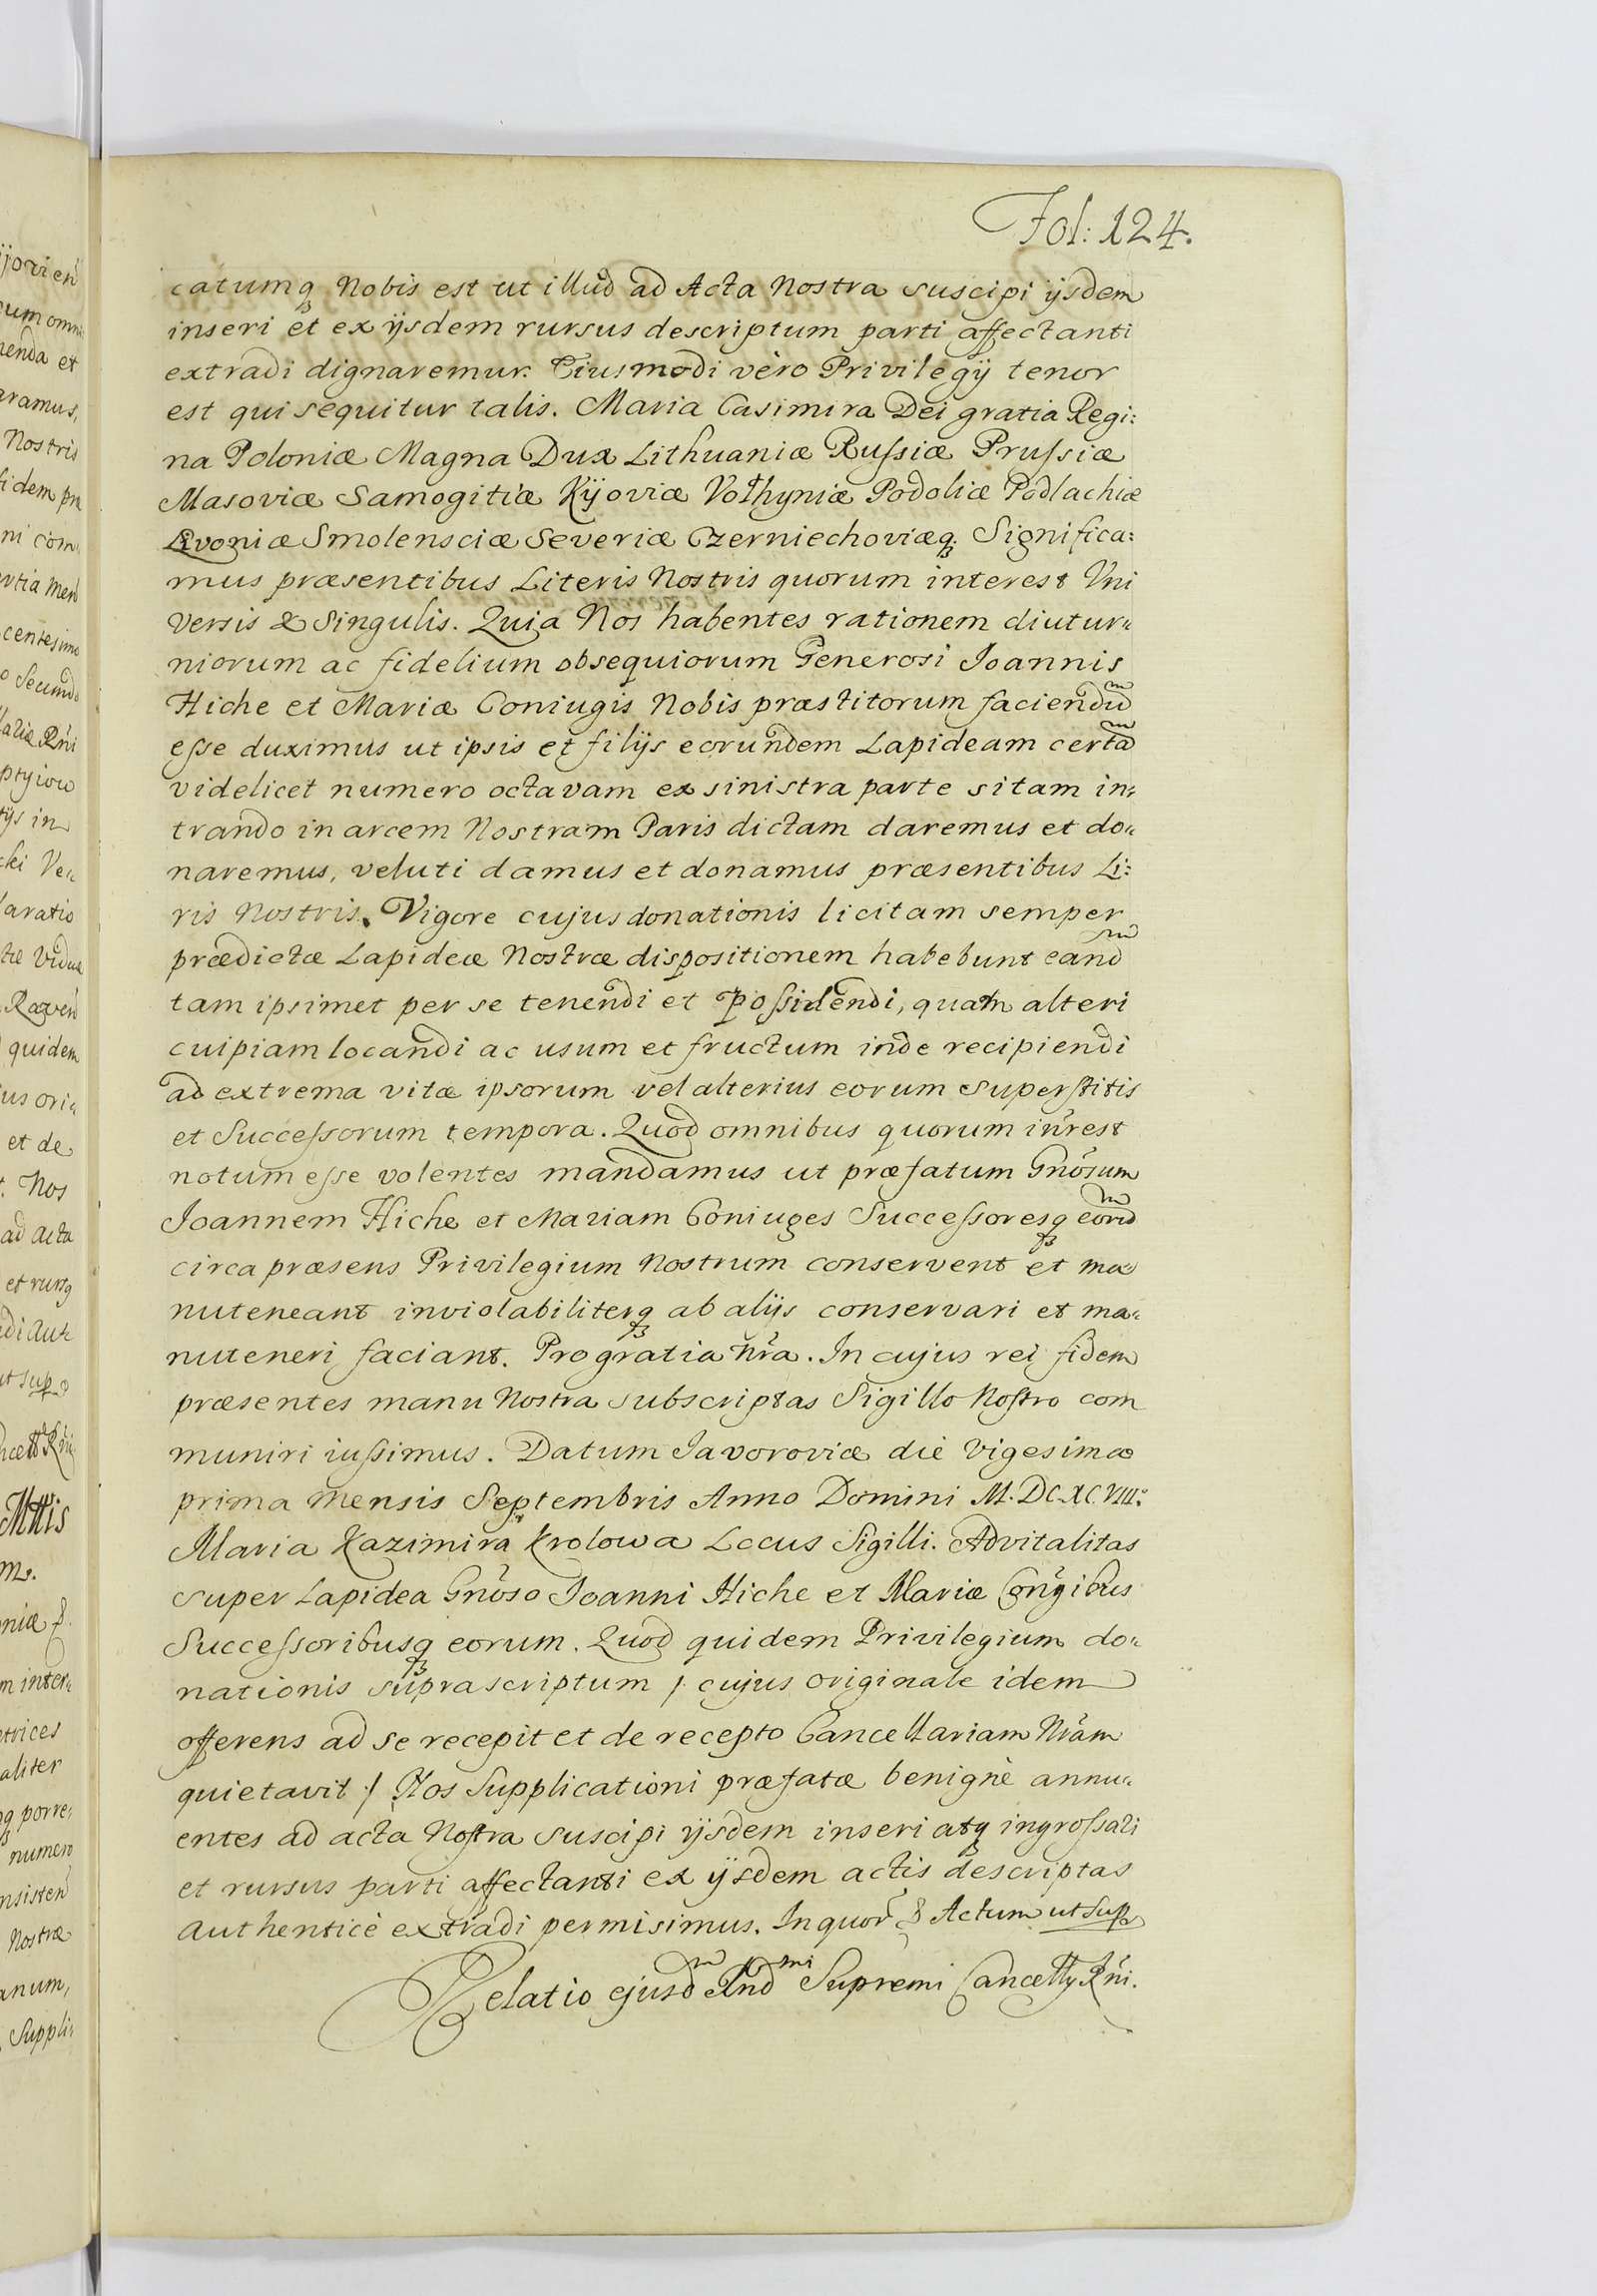 Fol: 124.
catumq₃ Nobis est ut illud ad Acta Nostra suscipi ijsdem
inseri et ex ijsdem rursus descriptum parti affectanti
extradi dignaremur. Eiusmodi vero Privilegij tenor
est qui sequitur talis. Maria Casimira Dei gratia Regi:
na Poloniæ Magna Dux Lithuaniæ Rußiæ Prußiæ
Masoviæ Samogitiæ Kijoviæ Volhyniæ Podoliæ Podlachiæ
Livoniæ Smolensciæ Severiæ Czerniechoviæq₃ Significa:
mus præsentibus Literis Nostris quorum interest Vni
versis & Singulis. Quia Nos habentes rationem diutur:
niorum ac fidelium obsequiorum Generosi Ioannis
Hiche et Mariæ Coniugis Nobis præstitorum faciendũ
eſse duximus ut ipsis et filijs eorundem Lapideam certã
videlicet numero octavam ex sinistra parte sitam in:
trando in arcem Nostram Paris dictam daremus et do:
naremus, veluti damus et donamus præsentibus Li:
ris Nostris. Vigore cujus donationis licitam semper
prædictæ Lapideæ Nostræ dispositionem habebunt eandm
tam ipsimet per se tenendi et poſsidendi, quam alteri
cuipiam locandi ac usum et fructum inde recipiendi
ad extrema vitæ ipsorum vel alterius eorum superstitis
et Succeſsorum tempora. Quod omnibus quorum inrest
notum eſse volentes mandamus ut præfatum Gnosum
Joannem Hiche et Mariam Coniuges Succeſsoresq₃ eorũ
circa præsens Privilegium Nostrum conservent et ma
nuteneant inviolabiliterq₃ ab alijs conservari et ma:
nuteneri faciant. Pro gratia Nra. In cujus rei fidem
præsentes manu Nostra subscriptas Sigillo Nostro com
muniri iuſsimus. Datum Javoroviæ die Vigesima
prima Mensis Septembris Anno Domini M.DC.XC.VIII.
Maria Kazimira Krolowa Locus Sigilli. Advitalitas
super Lapidea Gnoso Joanni Hiche et Mariæ Congibus
Succeſsoribusq₃ eorum. Quod quidem Privilegium do:
nationis suprascriptum /: cujus originale idem
offerens ad se recepit et de recepto Cancellariam Nram
quietavit :/ Nos Supplicationi præfatæ benignè annu:
entes ad acta Nostra suscipi ijsdem inseri atq₃ ingroſsari
et rursus parti affectanti ex ijsdem actis descriptas
authenticè extradi permisimus. In quor & Actum ut sup
Relatio ejusdm Indmi Supremi Cancelly Rni.